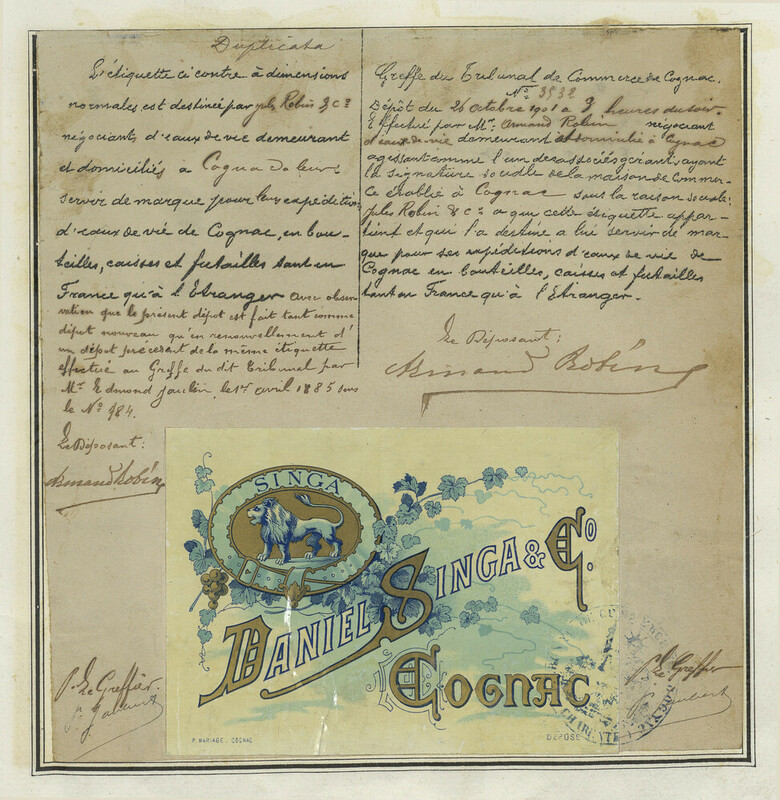 Duplicata
L'étiquette ci contre à dimensions
normales est destinée par Jules Robin & Cº
négociants d'eaux de vie demeurant
et domiciliés à Cognac da leur
servir de marque pour leurs expéditions
d'eaux de vie de Cognac, en bou-
teilles, caisses et futailles tant en
France qu'à l'Etranger avec obser-
vation que le présent dépôt est fait tant comme
dépôt nouveau qu'en renouvellement d'
un dépôt précédent de la même étiquette
effectué au Greffe du dit Tribunal par
Mr Edmond Jaulin le 1er avril 1885 sous
le Nº 984.
Le Déposant:
Armand Robin
P. Le Greffier.
Greffe du Tribunal de Commerce de Cognac.
Nº 3532
Dépôt du 26 Octobre 1901 à 3 heures du soir
Effectué par Mr. Armand Robin négociant
d'eaux de vie demeurant et domicilié à Cognac
agissant comme l'un des associés gérants, ayant
la signature sociale de la maison de Commer-
ce établie à Cognac sous la raison sociale:
Jules Robin & Cº a que cette étiquette appar-
tient et qui l'a destiné a lui servir de mar-
que pour ses expéditions d'eaux de vie de
Cognac en bouteilles, caisses et futailles
tant en France qu'à l'Etranger.
Le Déposant:
Armand Robin
SINGA
DANIEL SINGA & Cº.
COGNAC
P. MARIAGE. COGNAC
DÉPOSÉ
P. Le Greffier